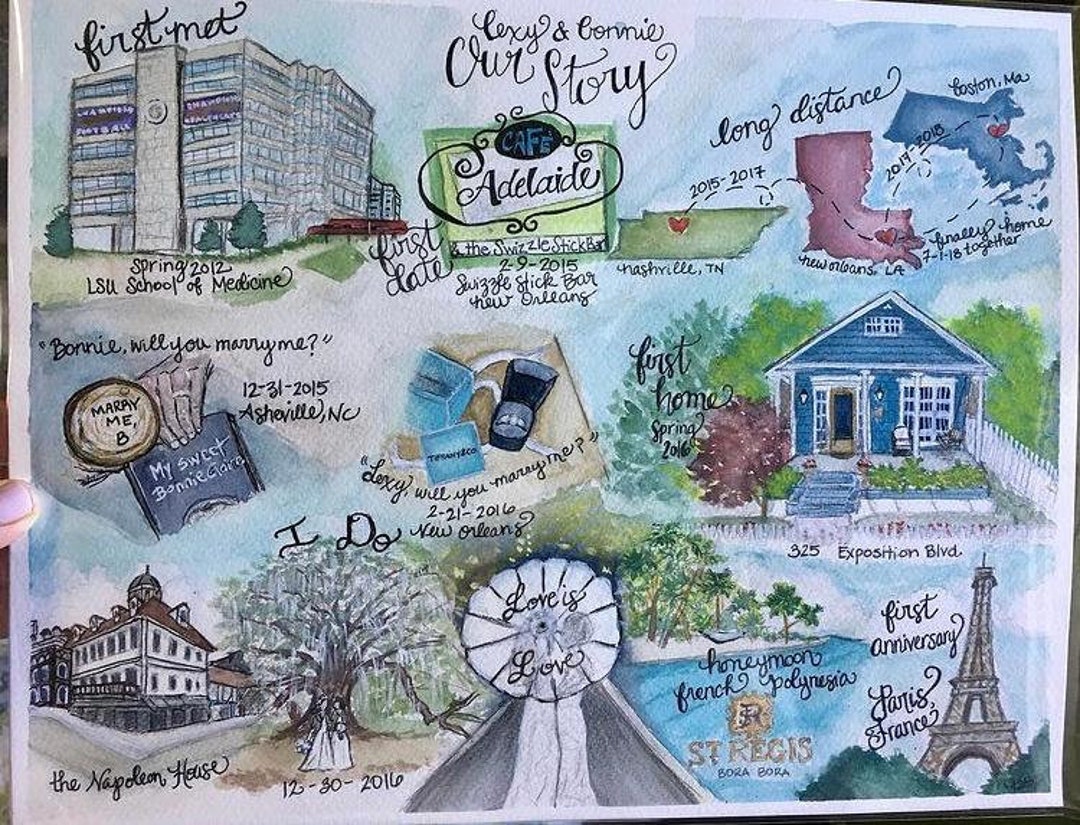 first met
CHAMPIONS
CHAMPIONS
FOOTBALL
Spring 2012
LSU School of Medicine
Lexy & Bonnie
Our
Story
CAFÉ
Adelaide
& the Swizzle Stick Bar
first
date
2-9-2015
Swizzle Stick Bar
New Orleans
long distance
Boston, Ma
2015-2017
2017-2018
Nashville, TN
New Orleans, LA
finally home
7-1-18 together
"Bonnie, will you marry me?"
12-31-2015
Asheville, NC
MARRY
ME,
B
My sweet
Bonnie Clare
TIFFANY & CO.
"Lexy, will you marry me?"
2-21-2016
New Orleans
first
home
Spring
2016
325 Exposition Blvd.
I Do
the Napoleon House
12-30-2016
Love is
Love
honeymoon
french polynesia
R
ST REGIS
BORA BORA
first
anniversary
Paris,
France